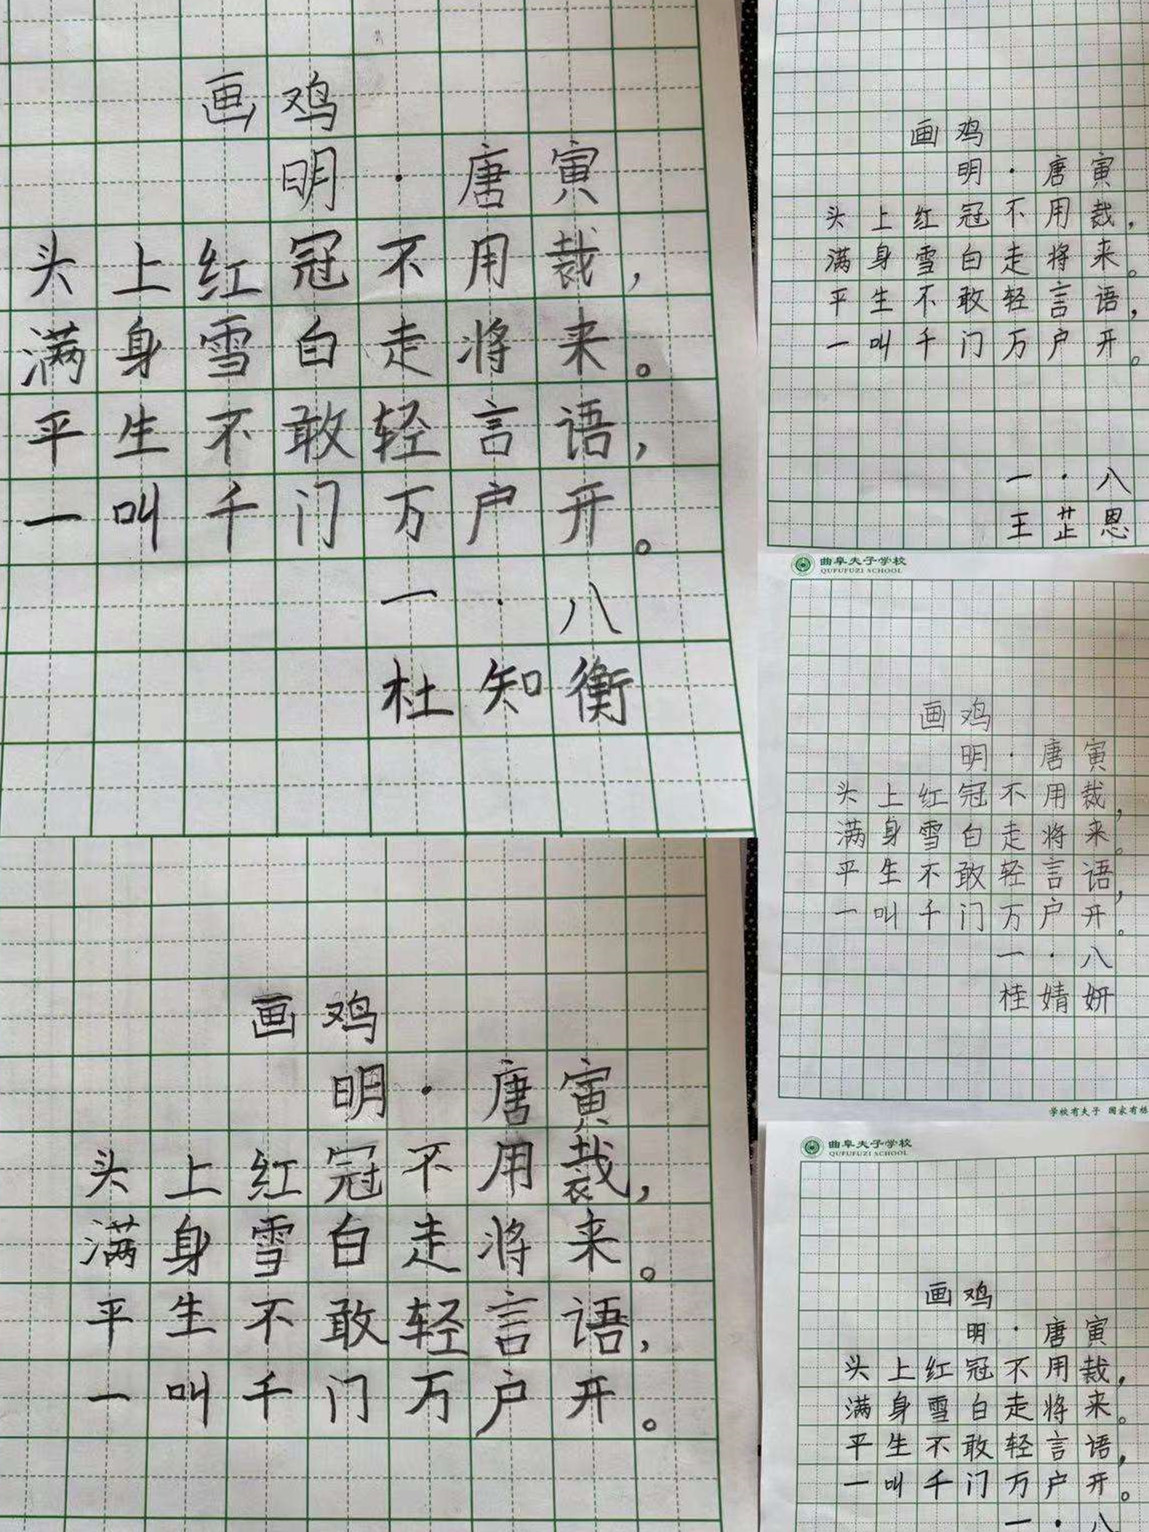 画鸡
明·唐寅
头上红冠不用裁，
满身雪白走将来。
平生不敢轻言语，
一叫千门万户开。
一·八
杜知衡
画鸡
明·唐寅
头上红冠不用裁，
满身雪白走将来。
平生不敢轻言语，
一叫千门万户开。
画鸡
明·唐寅
头上红冠不用裁，
满身雪白走将来。
平生不敢轻言语，
一叫千门万户开。
一·八
王芷恩
曲阜夫子学校
QUFUFUZI SCHOOL
画鸡
明·唐寅
头上红冠不用裁，
满身雪白走将来。
平生不敢轻言语，
一叫千门万户开。
一·八
桂婧妍
学校有夫子 国家有栋
曲阜夫子学校
QUFUFUZI SCHOOL
画鸡
明·唐寅
头上红冠不用裁，
满身雪白走将来。
平生不敢轻言语，
一叫千门万户开。
一·八